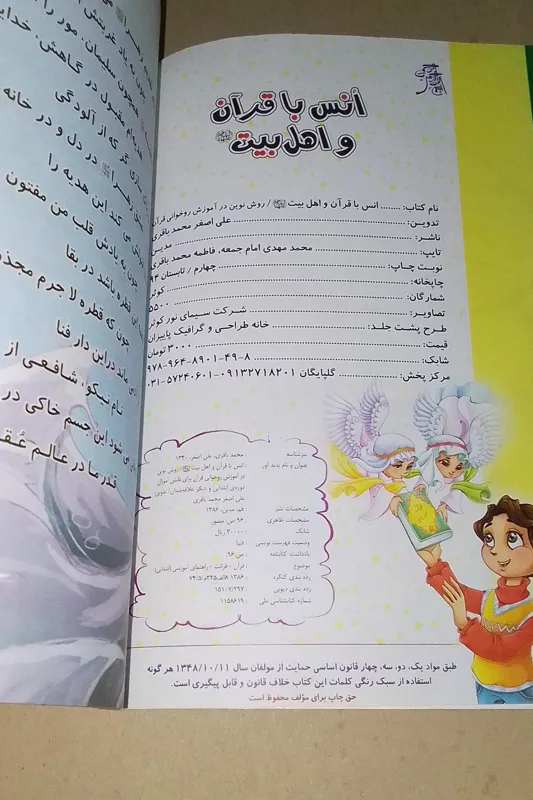 اُنس با قرآن
و اهل بیت
نام کتاب: ........ انس با قرآن و اهل بیت / روش نوین در آموزش روخوانی قرآن
تدوین: ........ علی اصغر محمد باقری
ناشر: ........ مدین
تایپ: ........ محمد مهدی امام جمعه، فاطمه محمد باقری
نوبت چاپ: ........ چهارم / تابستان ۹۴
چاپخانه: ........ کوثر
شمارگان: ........ ۵۵۰۰
تصاویر: ........ شرکت سیمای نور کوثر
طرح پشت جلد: ........ خانه طراحی و گرافیک پاییزان
قیمت: ........ ۳۰۰۰ تومان
شابک: ........ ۹۷۸-۹۶۴-۸۹۰۱-۴۹-۸
مرکز پخش: ........ گلپایگان ۰۹۱۳۲۷۱۸۲۰۱-۰۳۱-۵۷۲۴۰۶۰۱
سرشناسه : محمد باقری، علی اصغر، ۱۳۴۰
عنوان و نام پدید آور : انس با قرآن و اهل بیت / روش نوین
در آموزش روخوانی قرآن برای دانش آموزان
دوره‌ی ابتدایی و دیگر علاقه‌مندان/ تدوین
علی اصغر محمد باقری
مشخصات نشر : قم: مدین، ۱۳۸۶
مشخصات ظاهری : ۹۶ ص، مصور
شابک : ۲۰۰۰۰ ریال
وضعیت فهرست نویسی : فیپا
یادداشت: کتابنامه : ص ۹۶.
موضوع : قرآن - قرائت - راهنمای آموزشی (ابتدایی)
رده بندی کنگره : ۱۳۸۶
رده بندی دیویی : ۲۹۷/۱۵۱۰۷
شماره کتابشناسی ملی : ۱۱۵۸۶۱۹
طبق مواد یک، دو، سه، چهار قانون اساسی حمایت از مولفان سال ۱۳۴۸/۱۰/۱۱ هر گونه
استفاده از سبک رنگی کلمات این کتاب خلاف قانون و قابل پیگیری است.
حق چاپ برای مؤلف محفوظ است
همچون سلمان، مور را
هدیه‌ام مقبول در گاهش، خدا
گر که از آلودگی
در دل و در خانه
می کند این هدیه را
چون به یادش قلب من مفتون
قطره باشد در بقا
چون که قطره لا جرم مجذ
ماند دراین دار فنا
نام نیکو، شافعی از
می شود این جسم خاکی در
قدر ما در عالم عُق